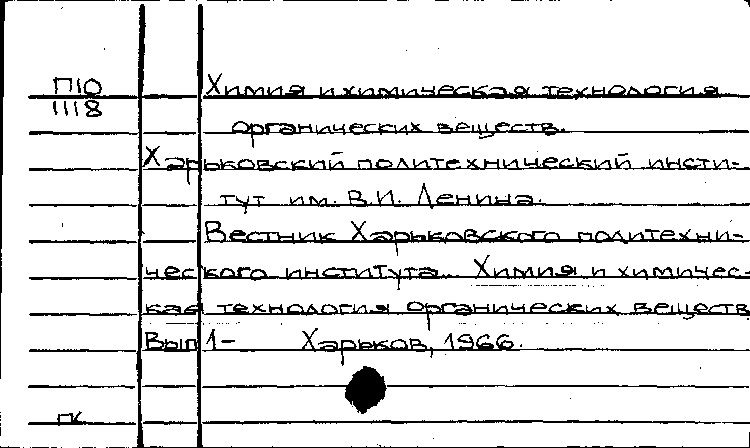 П10
1118
Химия и химическая технология
органических веществ.
Харьковский политехнический инсти-
тут им. В.И. Ленина.
Вестник Харьковского политехни-
ческого института. Химия и химичес-
кая технология органических веществ
Вып 1- Харьков, 1966.
ГК